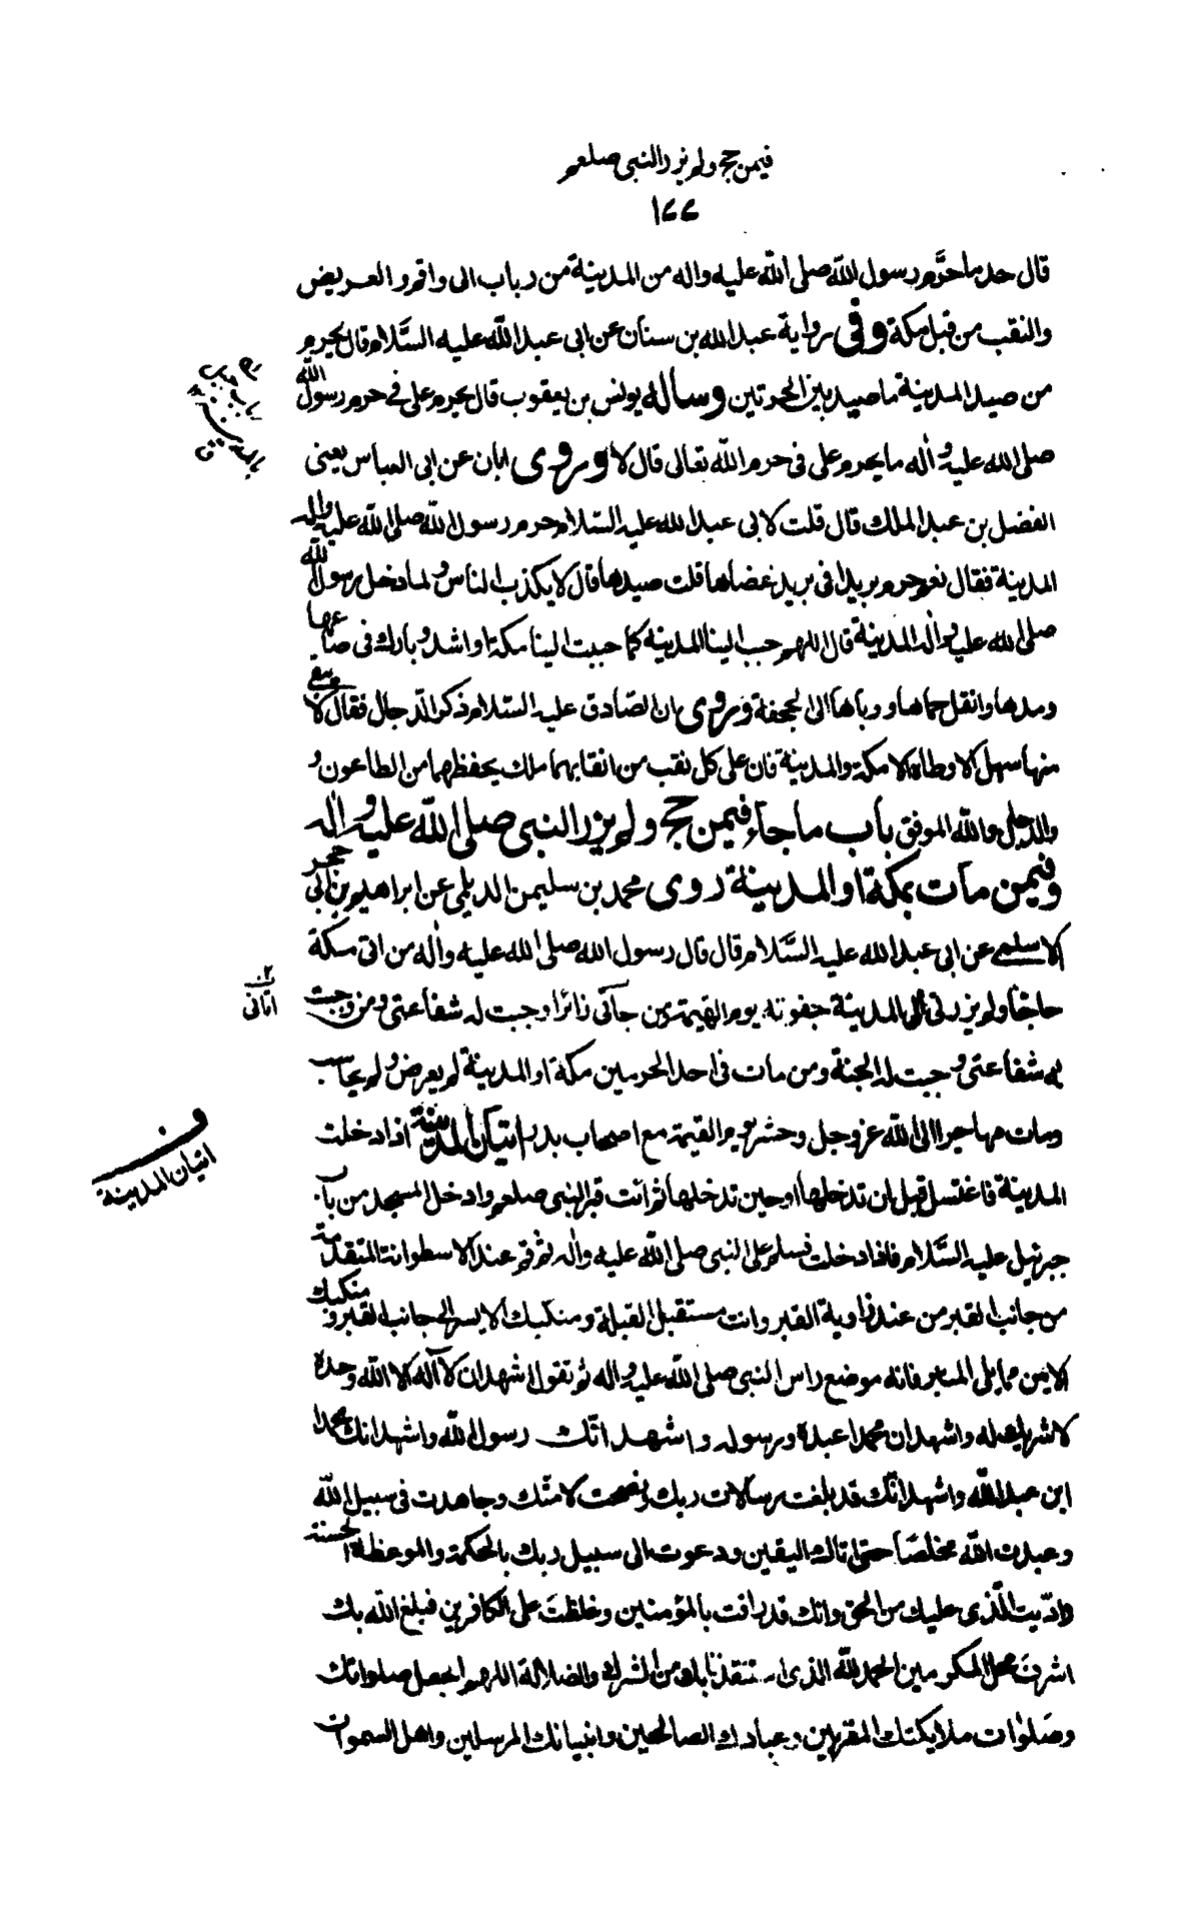 فيمن حج ولم يزر النبى صلعم
١٧٧
قال حد ما حرَّم رسول اللّه صلى اللّه عليه واله من المدينة من رباب الى واقم والعريض
والنقب من قبل مكة وفى رواية عبد الله بن سنان عن ابى عبد اللّه عليه السَّلام قال يحرم
من صيد المدينة ما صيد بين الحرتين وساله يونس بن يعقوب قال يحرم على فى حرم رسول اللّه
صلى الله عليه واله ما يحرم على فى حرم اللّه تعالى قال لا وروى ابان عن ابى العباس يعنى
الفضل بن عبد الملك قال قلت لابى عبد الله عليه السّلام حرم رسول اللّه صلى اللّه عليه واله
المدينة فقال نعم حرم بريدا فى بريد غضاها قلت صيدها قال لا يكذب الناس ولما دخل رسول اللّه
صلى الله عليه واله المدينة قال اللهم حبب الينا المدينة كما حببت الينا مكة او اشد وبارك فى صاعها
ومدها وانقل حماها ووباها الى الجحفة وروى ان الصّادق عليه السّلام ذكر الدّجال فقال لا يبقى
منها سهل الا وطاه الا مكة والمدينة فان على كل نقب من انقابهما ملك يحفظهما من الطاعون و
والدجال واللّه الموفق باب ما جاء فيمن حج ولم يزر النبى صلى اللّه عليه واله
وفيمن مات بمكة او المدينة روى محمد بن سليمن الديلمى عن ابراهيم بن ابى حجر
الاسلمى عن ابى عبد الله عليه السَّلام قال قال رسول الله صلى الله عليه واله من اتى مكة
حاجّا ولم يزرنى الى المدينة جفوته يوم القيمة ومن جآئى زائرا وجبت له شفاعتى ومن وجبت
له شفاعتى وجبت له الجنة ومن مات فى احد الحرمين مكة او المدينة لم يعرض ولم يحاسب
ومات مهاجرا الى اللّه عز وجل وحشر يوم القيمة مع اصحاب بدر اتيان المدينة اذا دخلت
المدينة فاغتسل قبل ان تدخلها او حين تدخلها ثم ائت قبر النبى صلعم وادخل المسجد من باب
جبرئيل عليه السَّلام فاذا دخلت فسلم على النبى صلى اللّه عليه واله ثم قم عند الاسطوانة المتقدمة
من جانب القبر من عند زاوية القبر وانت مستقبل القبلة ومنكبك الايسر الى جانب القبر ومنكبك
الايمن مما يلى المنبر فانه موضع راس النبى صلى اللّه عليه واله ثم تقول اشهد ان لا آله الا اللّه وحده
لا شريك له واشهد ان محمدا عبده ورسوله واشهد انّك رسول اللّه واشهد انك محمد
ابن عبد اللّه واشهد انّك قد بلغت رسالات ربك ونصحت لامتك وجاهدت فى سبيل اللّه
وعبدت اللّه مخلصًا حتى اتاك اليقين ودعوت الى سبيل ربك بالحكمة والموعظة الحسنة
وادّيت الّذى عليك من الحق وانك قد رافت بالمؤمنين وغلظت على الكافرين فبلغ اللّه بك
اشرف محل المكرمين الحمد للّه الذى استنقذنا بك من الشرك والضلالة اللهم اجعل صلواتك
وصلوات ملايكتك المقربين وعبادك الصالحين وانبيائك المرسلين واهل السموات
اتانى
اتيان المدينة